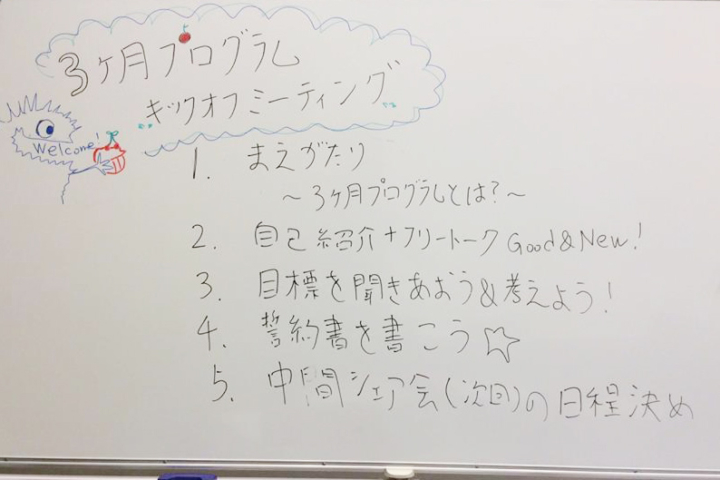 3ヶ月プログラム
キックオフミーティング
Welcome!
1. まえがたり
～3ヶ月プログラムとは?～
2. 自己紹介+フリートーク Good&New!
3. 目標を聞きあおう&考えよう!
4. 誓約書を書こう☆
5. 中間シェア会(次回)の日程決め